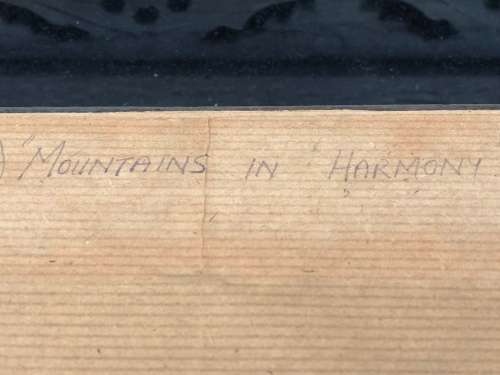 ) "MOUNTAINS IN HARMONY